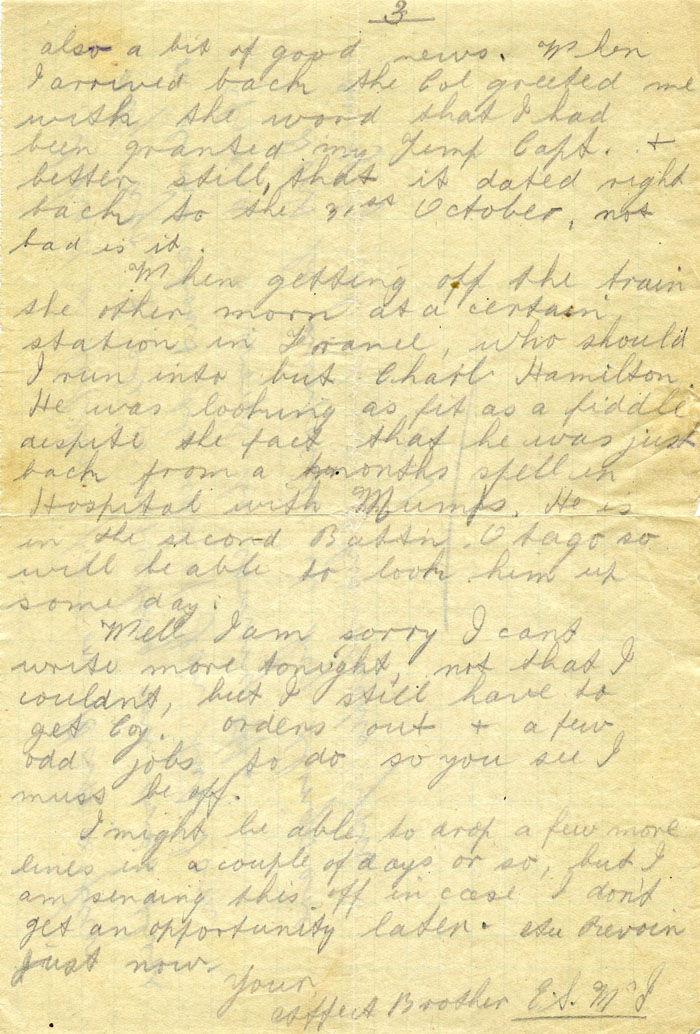 3
also a bit of good news. When
I arrived back the Col greeted me
with the word that I had
been granted my Temp Capt. +
better still, that it dated right
back to the 31st October, not
bad is it.
When getting off the train
the other morn at a certain
station in France, who should
I run into but Charl Hamilton
He was looking as fit as a fiddle
despite the fact that he was just
back from a months spell in
Hospital with Mumps. He is
in the second Battn. Otago so
will be able to look him up
some day.
Well I am sorry I cant
write more tonight, not that I
couldn't, but I still have to
get Coy. orders out + a few
odd jobs to do so you see I
muss be off.
I might be able to drop a few more
lines in a couple of days or so, but I
am sending this off in case I don't
get an opportunity later. Au Revoin
just now.
Your
Affect Brother E.S. McI